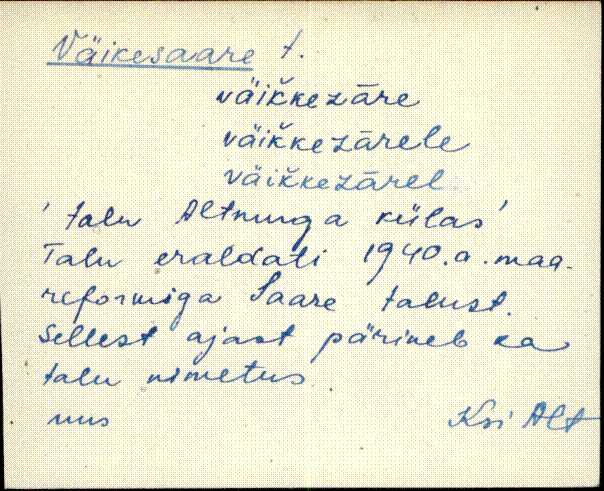 Väikesaare t.
väiк̆kezāre
väiк̆kezārele
väiк̆kezārel
'talu Altnurga külas'
Talu eraldati 1940.a. maa-
reformiga Saare talust.
Sellest ajast pärineb ka
talu nimetus
nus Ksi Alt